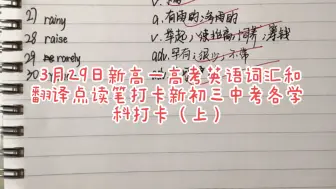 27) rainy a.有雨的;多雨的
28 raise v.举起,使提高;饲养;筹钱
29 rarely adv.罕有;很少;不常
3月29日新高一高考英语词汇和
翻译点读笔打卡新初三中考各学
科打卡（上）